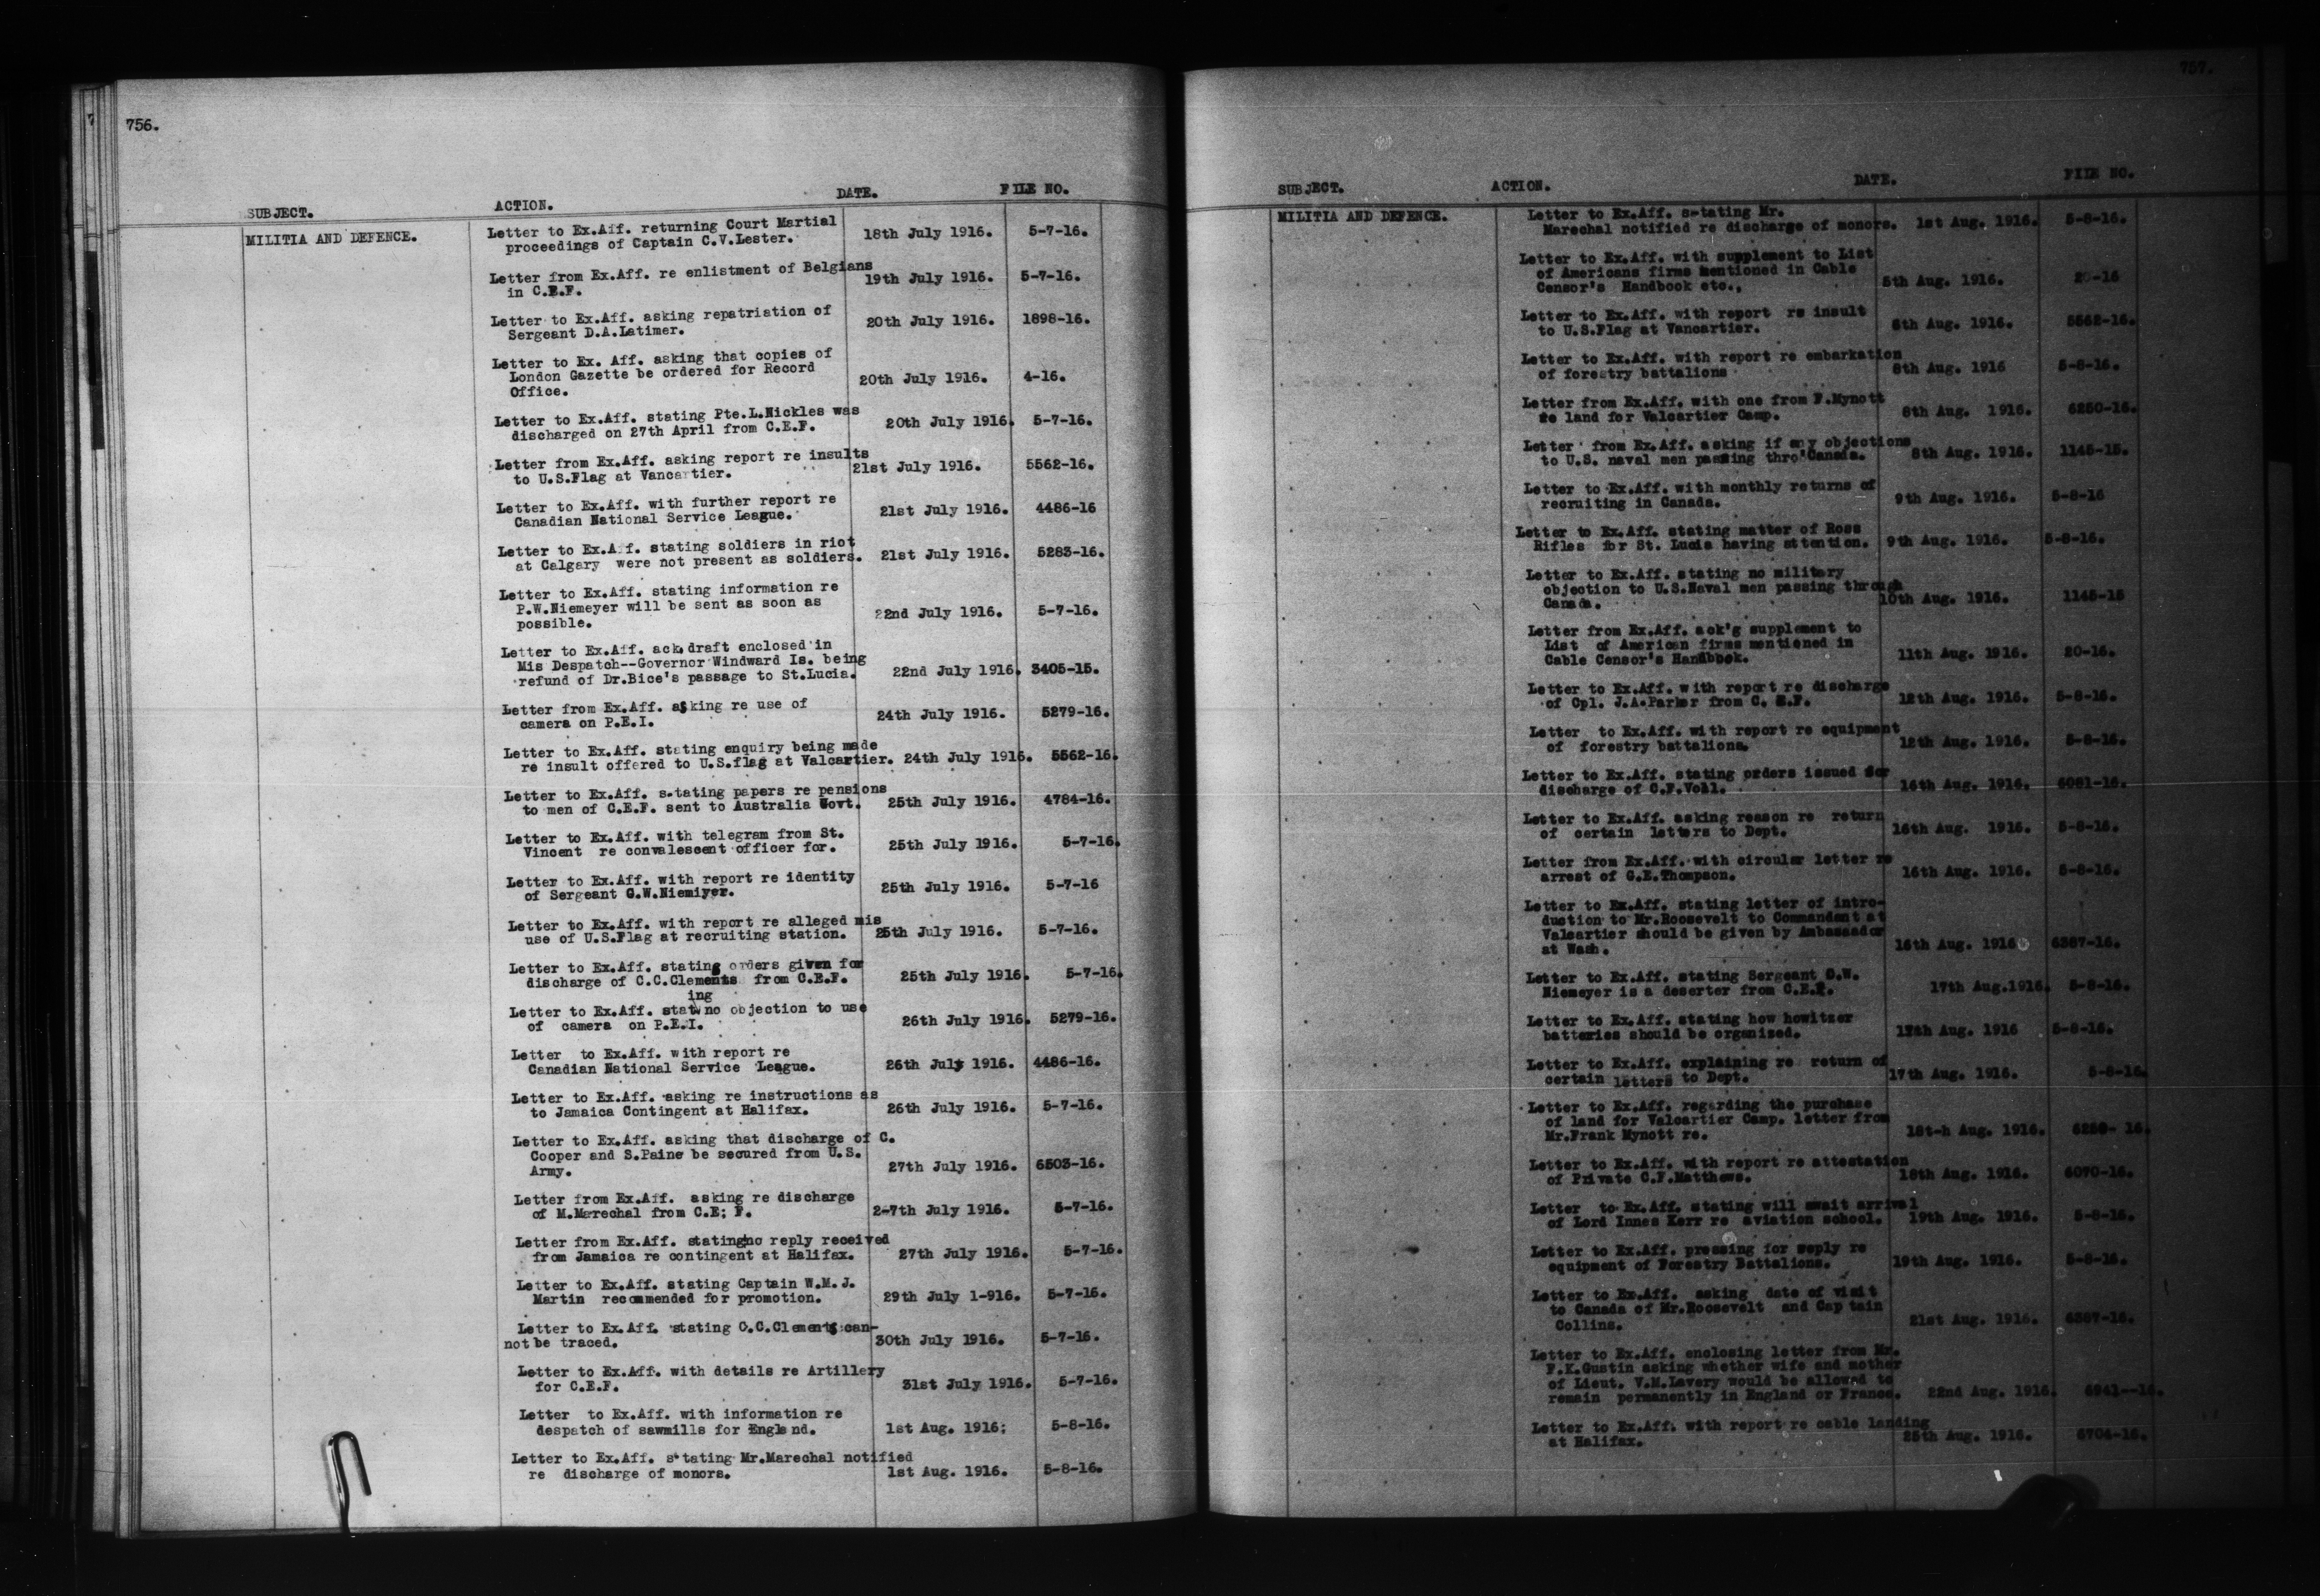 756.
SUBJECT. ACTION. DATE. FILE NO.
MILITIA AND DEFENCE.
Letter to Ex.Aff. returning Court Martial
proceedings of Captain C.V.Lester. 18th July 1916. 5-7-16.
Letter from Ex.Aff. re enlistment of Belgians
in C.E.F. 19th July 1916. 5-7-16.
Letter to Ex.Aff. asking repatriation of
Sergeant D.A.Latimer. 20th July 1916. 1898-16.
Letter to Ex. Aff. asking that copies of
London Gazette be ordered for Record
Office. 20th July 1916. 4-16.
Letter to Ex.Aff. stating Pte.L.Nickles was
discharged on 27th April from C.E.F. 20th July 1916. 5-7-16.
Letter from Ex.Aff. asking report re insults
to U.S.Flag at Vancartier. 21st July 1916. 5562-16.
Letter to Ex.Aff. with further report re
Canadian National Service League. 21st July 1916. 4486-16
Letter to Ex.Aff. stating soldiers in riot
at Calgary were not present as soldiers. 21st July 1916. 5283-16.
Letter to Ex.Aff. stating information re
P.W.Niemeyer will be sent as soon as
possible. 22nd July 1916. 5-7-16.
Letter to Ex.Aff. ack.draft enclosed in
Mis Despatch--Governor Windward Is. being
refund of Dr.Bice's passage to St.Lucia. 22nd July 1916. 3405-15.
Letter from Ex.Aff. asking re use of
camera on P.E.I. 24th July 1916. 5279-16.
Letter to Ex.Aff. stating enquiry being made
re insult offered to U.S.flag at Valcartier. 24th July 1916. 5562-16.
Letter to Ex.Aff. s-tating papers re pensions
to men of C.E.F. sent to Australia Govt. 25th July 1916. 4784-16.
Letter to Ex.Aff. with telegram from St.
Vincent re convalescent officer for. 25th July 1916. 5-7-16.
Letter to Ex.Aff. with report re identity
of Sergeant G.W.Niemiyer. 25th July 1916. 5-7-16
Letter to Ex.Aff. with report re alleged mis
use of U.S.Flag at recruiting station. 25th July 1916. 5-7-16.
Letter to Ex.Aff. stating orders given for
discharge of C.C.Clements from C.E.F. 25th July 1916. 5-7-16.
ing
Letter to Ex.Aff. stat no objection to use
of camera on P.E.I. 26th July 1916. 5279-16.
Letter to Ex.Aff. with report re
Canadian National Service League. 26th July 1916. 4486-16.
Letter to Ex.Aff. asking re instructions as
to Jamaica Contingent at Halifax. 26th July 1916. 5-7-16.
Letter to Ex.Aff. asking that discharge of C.
Cooper and S.Paine be secured from U.S.
Army. 27th July 1916. 6503-16.
Letter from Ex.Aff. asking re discharge
of M.Marechal from C.E; F. 2-7th July 1916. 5-7-16.
Letter from Ex.Aff. stating no reply received
from Jamaica re contingent at Halifax. 27th July 1916. 5-7-16.
Letter to Ex.Aff. stating Captain W.M.J.
Martin recommended for promotion. 29th July 1-916. 5-7-16.
Letter to Ex.Aff. stating C.C.Clements can-
not be traced. 30th July 1916. 5-7-16.
Letter to Ex.Aff. with details re Artillery
for C.E.F. 31st July 1916. 5-7-16.
Letter to Ex.Aff. with information re
despatch of sawmills for England. 1st Aug. 1916; 5-8-16.
Letter to Ex.Aff. s-tating Mr.Marechal notified
re discharge of monors. 1st Aug. 1916. 5-8-16.
757.
SUBJECT. ACTION. DATE. FILE NO.
MILITIA AND DEFENCE.
Letter to Ex.Aff. s-tating Mr.
Marechal notified re discharge of monors. 1st Aug. 1916. 5-8-16.
Letter to Ex.Aff. with supplement to List
of Americans firms mentioned in Cable
Censor's Handbook etc., 5th Aug. 1916. 20-16
Letter to Ex.Aff. with report re insult
to U.S.Flag at Vancartier. Aug. 1916. 5562-16.
Letter to Ex.Aff. with report re embarkation
of forestry battalions 8th Aug. 1916 5-8-16.
Letter from Ex.Aff. with one from F.Mynott
re land for Valcartier Camp. 8th Aug. 1916. 6250-16.
Letter from Ex.Aff. asking if any objections
to U.S. naval men passing thro'Canada. 8th Aug. 1916. 1145-15.
Letter to Ex.Aff. with monthly returns of
recruiting in Canada. 9th Aug. 1916. 5-8-16
Letter to Ex.Aff. stating matter of Ross
Rifles for St. Lucia having attention. 9th Aug. 1916. 5-8-16.
Letter to Ex.Aff. stating no military
objection to U.S.Naval men passing through
Canada. 10th Aug. 1916. 1145-15
Letter from Ex.Aff. ack'g supplement to
List of American firms mentioned in
Cable Censor's Handbook. 11th Aug. 1916. 20-16.
Letter to Ex.Aff. with report re discharge
of Cpl. J.A.Parker from C. E.F. 12th Aug. 1916. 5-8-16.
Letter to Ex.Aff. with report re equipment
of forestry battalions. 12th Aug. 1916. 5-8-16.
Letter to Ex.Aff. stating orders issued for
discharge of C.F.Voll. 16th Aug. 1916. 6081-16.
Letter to Ex.Aff. asking reason re return
of certain letters to Dept. 16th Aug. 1916. 5-8-16.
Letter from Ex.Aff. with circular letter re
arrest of G.E.Thompson. 16th Aug. 1916. 5-8-16.
Letter to Ex.Aff. stating letter of intro-
duction to Mr.Roosevelt to Commandant at
Valcartier should be given by Ambassador
at Wash. 16th Aug. 1916 6387-16.
Letter to Ex.Aff. stating Sergeant G.W.
Niemeyer is a deserter from C.E.F. 17th Aug.1916. 5-8-16.
Letter to Ex.Aff. stating how howitzer
batteries should be organized. 17th Aug. 1916 5-8-16.
Letter to Ex.Aff. explaining re return of
certain letters to Dept. 17th Aug. 1916. 5-8-16.
Letter to Ex.Aff. regarding the purchase
of land for Valcartier Camp. letter from
Mr.Frank Mynott re. 18t-h Aug. 1916. 6250- 16.
Letter to Ex.Aff. with report re attestation
of Private C.F.Matthews. 18th Aug. 1916. 6070-16.
Letter to Ex.Aff. stating will await arrival
of Lord Innes Kerr re aviation school. 19th Aug. 1916. 5-8-16.
Letter to Ex.Aff. pressing for reply re
equipment of Forestry Battalions. 19th Aug. 1916. 5-8-16.
Letter to Ex.Aff. asking date of visit
to Canada of Mr.Roosevelt and Captain
Collins. 21st Aug. 1916. 6387-16.
Letter to Ex.Aff. enclosing letter from Mr.
F.K.Gustin asking whether wife and mother
of Lieut. V.M.Lavery would be allowed to
remain permanently in England or France. 22nd Aug. 1916. 6941--16.
Letter to Ex.Aff. with report re cable landing
at Halifax. 25th Aug. 1916. 6704-16.